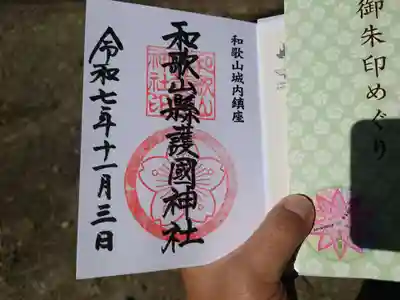 御朱印めぐり
和歌山城内鎮座
和歌山縣護國神社
令和七年十一月三日